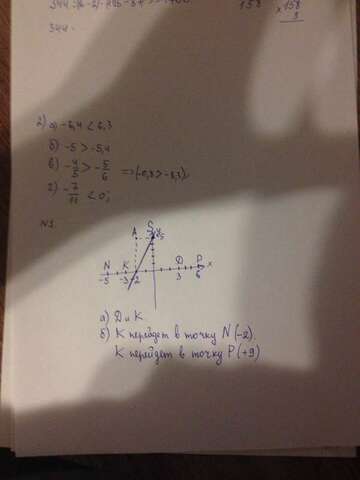 344
158
× 158
3
344
2) а) -6,4 < 6,3
б) -5 > -5,4
в) -4/5 > -5/6 ⇒ (-0,8 > -8,3)
г) -7/11 < 0;
N3
A S y
5
N K D P x
-5 -3 -2 3 6
а) D и K
б) K перейдет в точку N (-2).
K перейдет в точку P (+9)